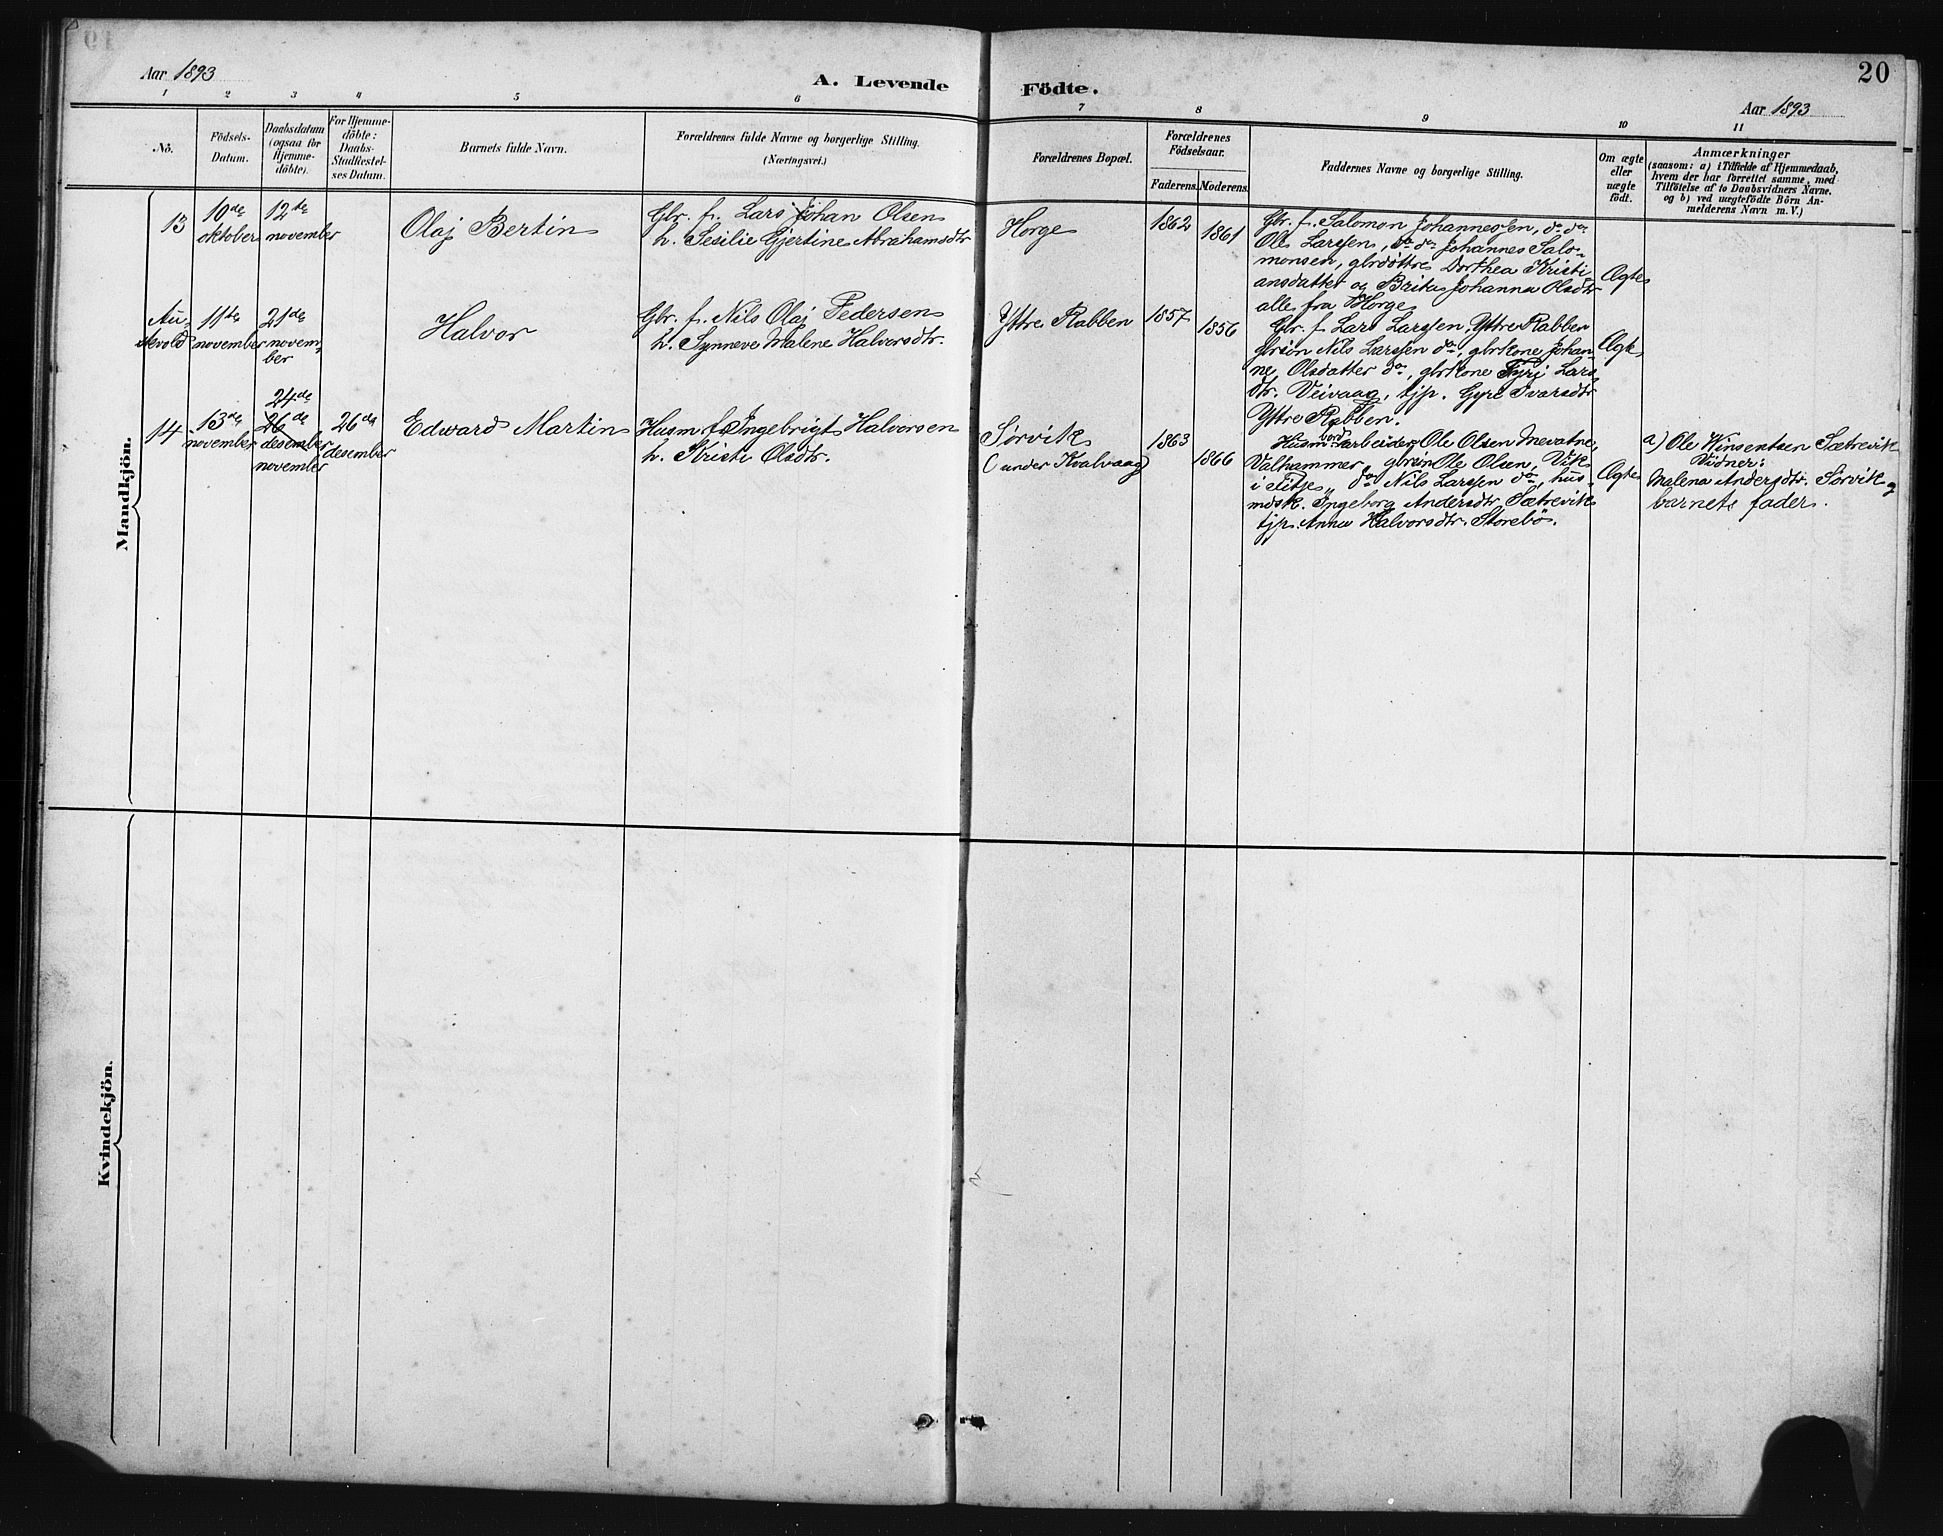 Aar 1893
A. Levende Födte.
20
Aar 1893
1 2 3 4 5 6 7 8 9 10 11
No.
Födsels-
Datum.
Daabsdatum
(ogsaa for
Hjemme-
döbte).
For Hjemme-
döbte:
Daabs-
Stadfæstel-
ses Datum.
Barnets fulde Navn.
Forældrenes fulde Navne og borgerlige Stilling.
(Næringsvei.)
Forældrenes Bopæl.
Forældrenes
Födselsaar.
Faderens. Moderens.
Faddernes Navne og borgerlige Stilling.
Om ægte
eller
uægte
födt.
Anmærkninger
(saasom: a) i Tilfælde af Hjemmedaab,
hvem der har forrettet samme, med
Tilföielse af to Daabsvidners Navne,
og b) ved uægtefödte Börn An-
melderens Navn m. V.)
Mandkjön.
13
10de
oktober
12te
november
Olaf Bertin
Gbr. f. Lars Johan Olsen
h. Sesilie Gjertine Abrahamsdtr
Horge
1862
1861
Gbr. f. Salomon Johannessen, do do
Ole Larssen, do do Johannes Salo-
monsen, gbrdøttre Dorthea Kristi-
ansdatter og Brita Johanna Olsdtr
alle fra Horge
Ægte
Au-
stevold
11te
november
21de
novem-
ber
Halvor
Gbr. f. Nils Olaj Pedersen
h. Synneve Malene Halvorsdtr.
Yttre Rabben
1857
1856
Gbr. f. Lars Larssen, Yttre Rabben
gbrsøn Nils Larssen do, gbrkone Johan-
ne Olsdatter do, gbrkone Lars-
dtr. Veivaag, tjp. Gyri Ivarsdtr
Yttre Rabben.
Ægte
14
13de
november
24de
26de
desember
november
26de
desember
Edward Martin
Husm. f. Ingebrigt Halvorsen
h. Kristi Olsdtr.
Sørvik
(under Kvalvaag)
1863
1866
Husm. Jordarbeider Ole Olsen Mevatne,
Valhammer, gbrsøn Ole Olsen, Vik
i Fitje, do Nils Larssen do, hus-
mdsk. Ingeborg Andersdtr. Sætrevik
tjp. Anna Halvorsdtr. Storebö.
Ægte
a) Ole Winsentsen Sætrevik
Vidner:
Malena Andersdtr. Sørvik og
barnets fader.
Kvindekjön.